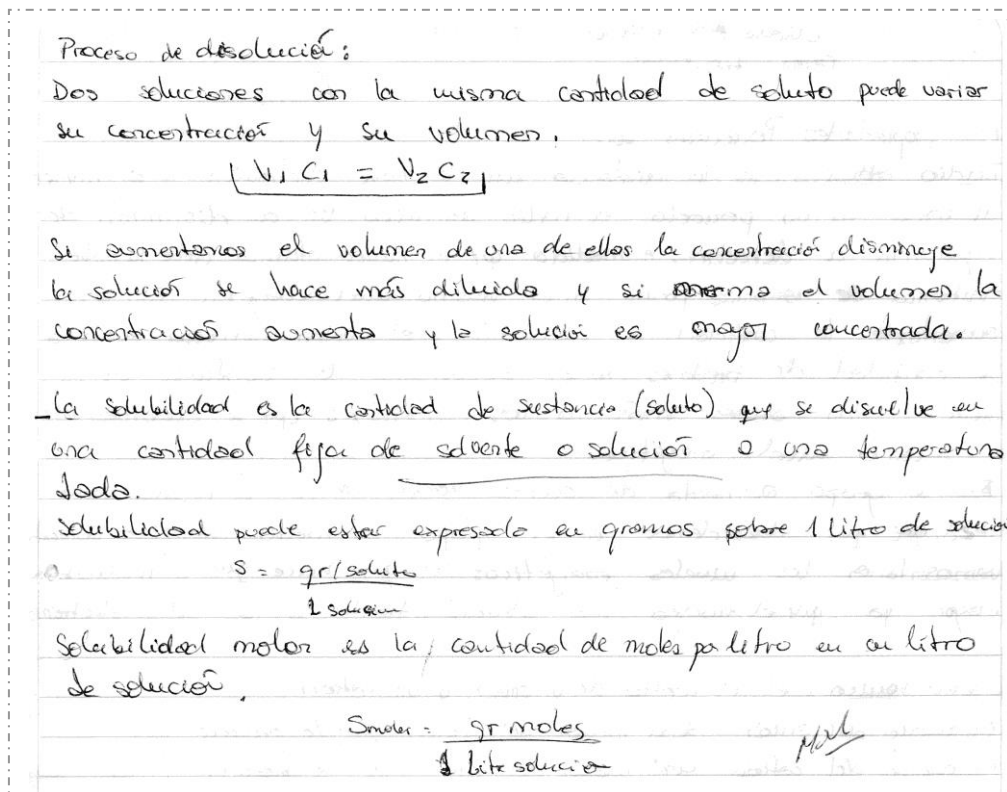 Proceso de disolución:
Dos soluciones con la misma cantidad de soluto puede variar
su concentración y su volumen.
V1 C1 = V2 C2
Si aumentamos el volumen de una de ellas la concentración disminuye
la solución se hace más diluida y si merma el volumen la
concentración aumenta y la solución es mayor concentrada.
La solubilidad es la cantidad de sustancia (soluto) que se disuelve en
una cantidad fija de solvente o solución a una temperatura
dada.
Solubilidad puede estar expresada en gramos sobre 1 litro de solución
S = gr/soluto
1 solución
Solubilidad molar es la, cantidad de moles por litro en un litro
de solución.
Smolar = gr moles
1 Litr solución